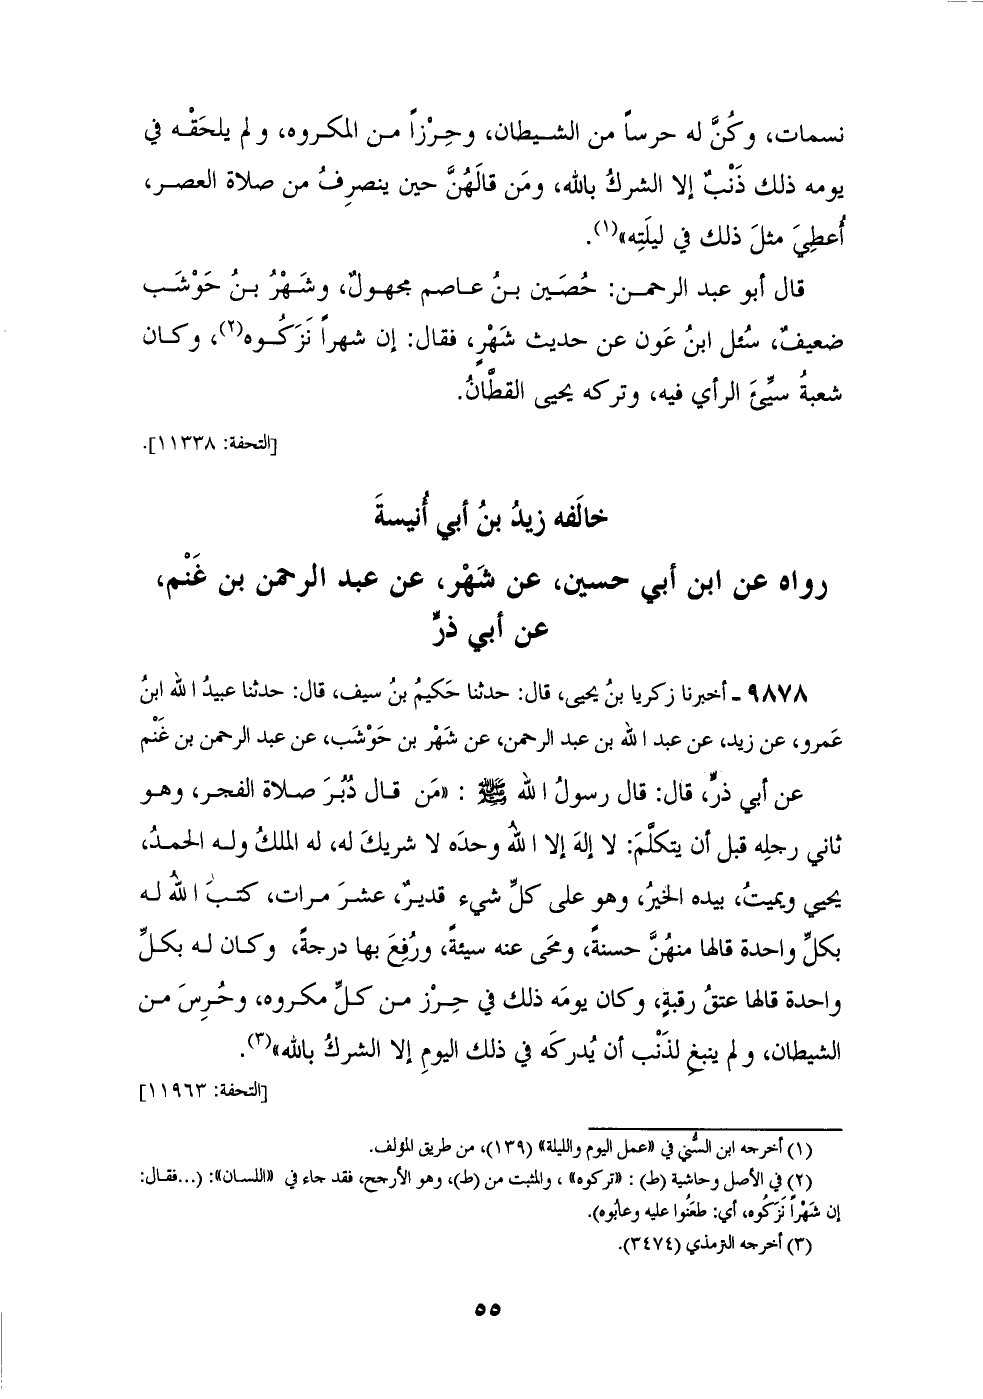 نسمات، وكُنَّ له حرساً من الشيطان، وحِرْزاً من المكروه، ولم يلحَقْه في
يومه ذلك ذَنْبٌ إلا الشركُ بالله، ومَن قالَهُنَّ حين ينصرِفُ من صلاة العصر،
أُعطِيَ مثلَ ذلك في ليلَتِه»(١).
قال أبو عبد الرحمن: حُصَين بنُ عاصم مجهولٌ، وشَهْرُ بنُ حَوْشَب
ضعيفٌ، سُئل ابنُ عَون عن حديث شَهْرٍ، فقال: إن شهراً نَزَكُوه(٢)، وكان
شعبةُ سيِّئَ الرأي فيه، وتركه يحيى القطَّانُ.
[التحفة: ١١٣٣٨].
خالَفه زيدُ بنُ أبي أُنيسةَ
رواه عن ابن أبي حسين، عن شَهْر، عن عبد الرحمن بن غَنْم،
عن أبي ذرٍّ
٩٨٧٨ ـ أخبرنا زكريا بنُ يحيى، قال: حدثنا حَكيمُ بنُ سيف، قال: حدثنا عبيدُ الله ابنُ
عَمرو، عن زيد، عن عبد الله بن عبد الرحمن، عن شَهْر بن حَوْشَب، عن عبد الرحمن بن غَنْم
عن أبي ذرٍّ، قال: قال رسولُ الله ﷺ : «مَن قال دُبُرَ صلاة الفجر، وهو
ثاني رجلِه قبل أن يتكلَّمَ: لا إلهَ إلا اللهُ وحدَه لا شريكَ له، له الملكُ وله الحمدُ،
يحيي ويميتُ، بيده الخيرُ، وهو على كلِّ شيء قديرٌ، عشرَ مرات، كتبَ اللهُ له
بكلِّ واحدة قالها منهُنَّ حسنةً، ومحَى عنه سيئةً، ورُفِعَ بها درجةً، وكان له بكلِّ
واحدة قالها عتقُ رقبةٍ، وكان يومَه ذلك في حِرْز من كلِّ مكروه، وحُرِسَ من
الشيطان، ولم ينبغِ لذَنْب أن يُدركَه في ذلك اليومِ إلا الشركُ بالله»(٣).
[التحفة: ١١٩٦٣]
(١) أخرجه ابن السُّني في «عمل اليوم والليلة» (١٣٩)، من طريق المؤلف.
(٢) في الأصل وحاشية (ط) : «تركوه» ، والمثبت من (ط)، وهو الأرجح، فقد جاء في «اللسان»: (...فقال:
إن شَهْراً نَزَكُوه، أي: طعَنُوا عليه وعابُوه).
(٣) أخرجه الترمذي (٣٤٧٤).
٥٥